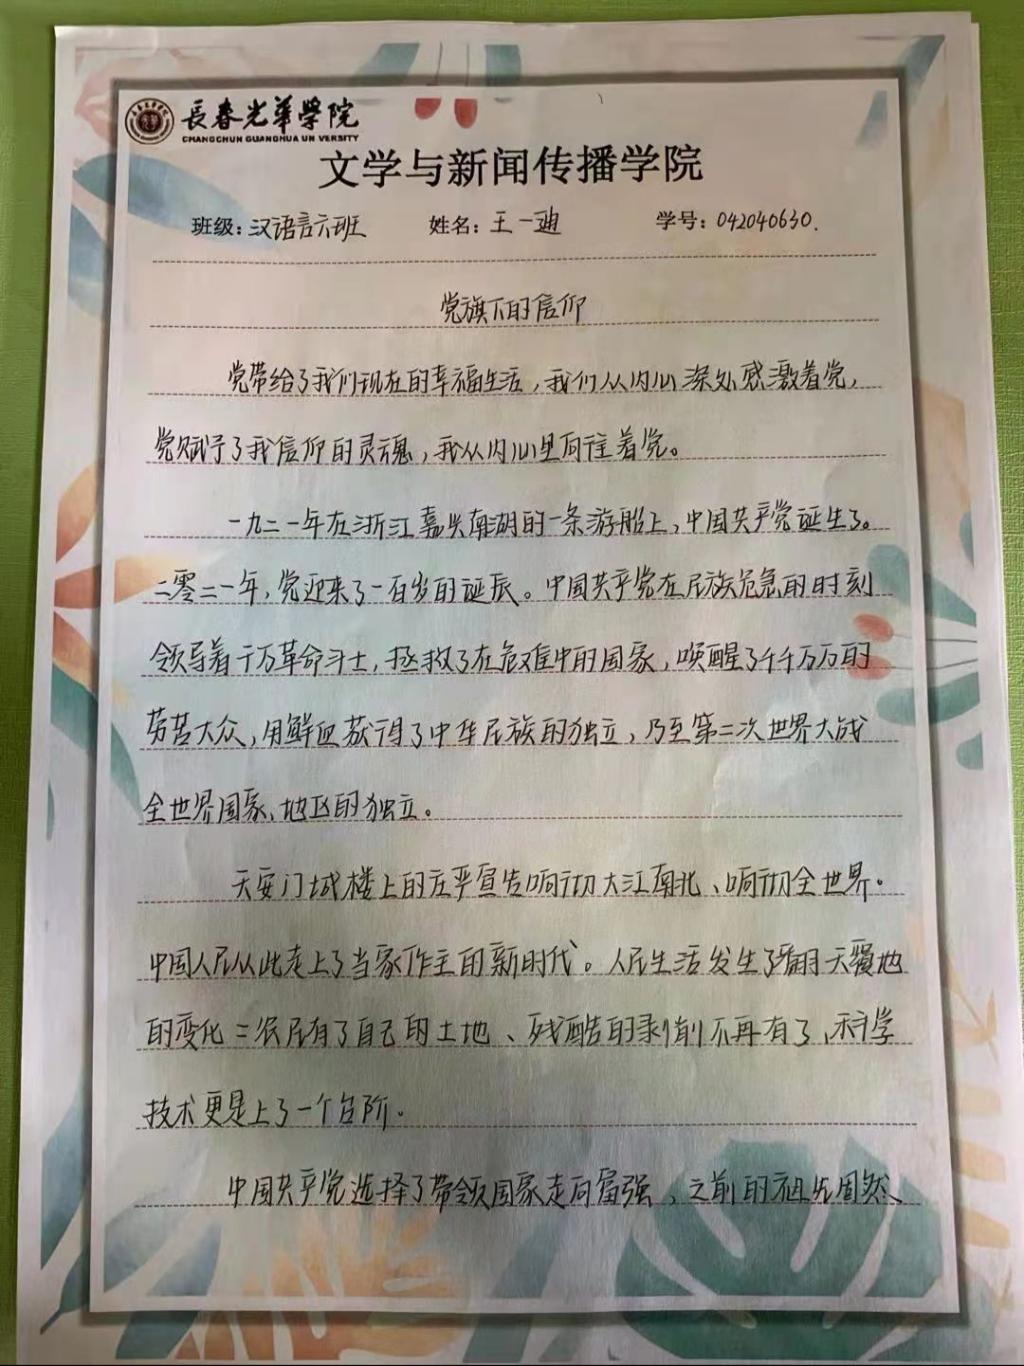 長春光華學院
CHANGCHUN GUANGHUA UN VERSITY
文学与新闻传播学院
班级：汉语言六班 姓名：王一迪 学号：042040630.
党旗下的信仰
党带给了我们现在的幸福生活，我们从内心深处感激着党，
党赋予了我信仰的灵魂，我从内心里向往着党。
一九二一年在浙江嘉兴南湖的一条游船上，中国共产党诞生了。
二零二一年，党迎来了一百岁的诞辰。中国共产党在民族危急的时刻
领导着千万革命斗士，拯救了在危难中的国家，唤醒了千千万万的
劳苦大众，用鲜血获得了中华民族的独立，乃至第二次世界大战
全世界国家、地区的独立。
天安门城楼上的庄严宣告响彻大江南北、响彻全世界。
中国人民从此走上了当家作主的新时代。人民生活发生了翻天覆地
的变化：农民有了自己的土地、残酷的剥削不再有了、科学
技术更是上了一个台阶。
中国共产党选择了带领国家走向富强，之前的祖先固然、